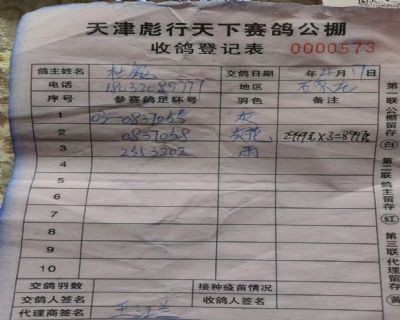 天津彪行天下赛鸽公棚
收鸽登记表 0000573
鸽主姓名 杜彪 交鸽日期 年 4月17日
电话 地区 石家庄
序号 参赛鸽足环号 羽色 备注
1 03-0837055 灰
2 0837058 灰花 2999元×3=8997元
3 2553202 雨
4
5
6
7
8
9
10
交鸽羽数 接种疫苗情况
交鸽人签名 收鸽人签名
代理商签名 王江兰
第一联公棚留存(白)
第二联鸽主留存(红)
第三联代理留存(黄